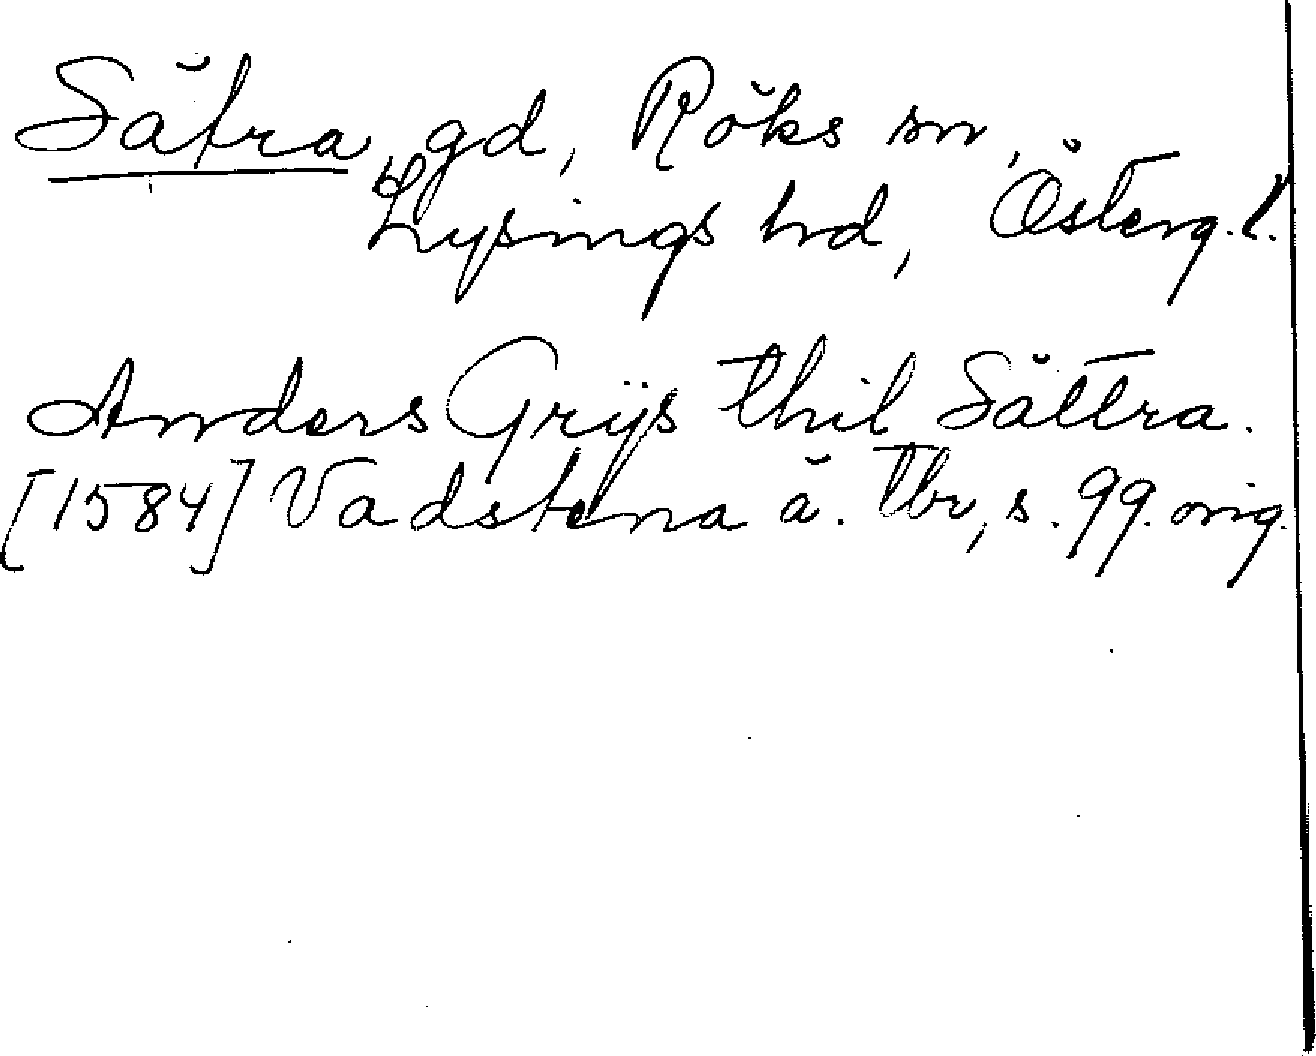 Sätra, gd, Röks sn,
Lysings hd, Österg. l.
Anders Grijs thil Sättra.
[1584] Vadstena ä. Tbr, s. 99. orig.